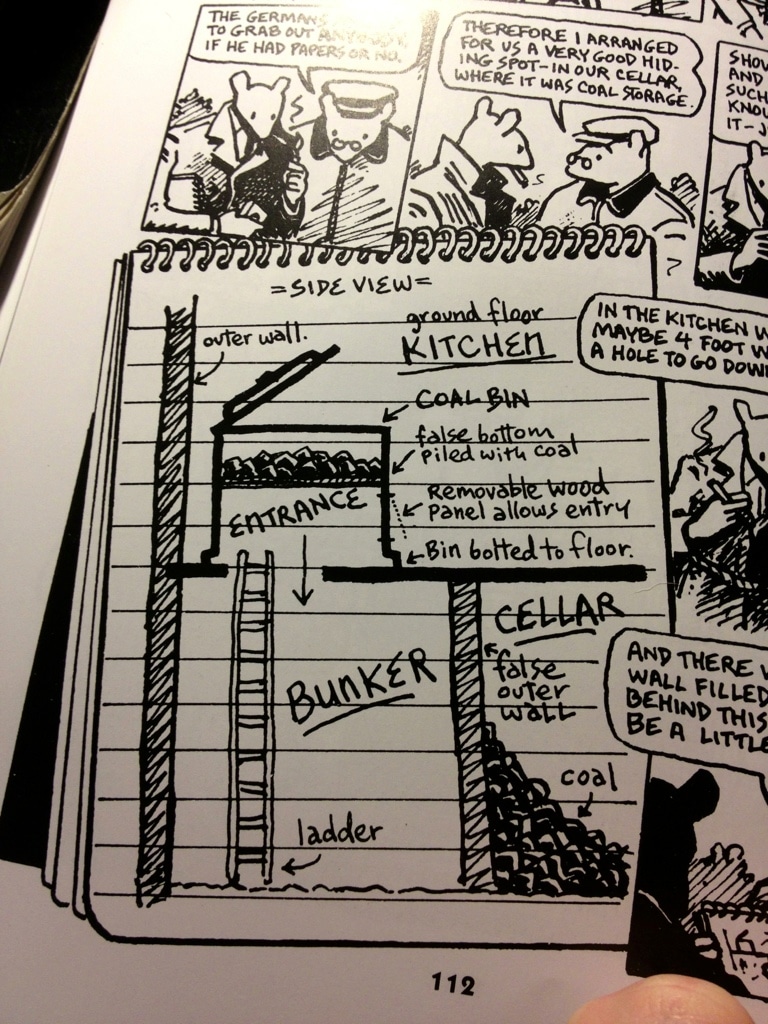 THE GERMANS
TO GRAB OUT
IF HE HAD PAPERS OR NO.
THEREFORE I ARRANGED
FOR US A VERY GOOD HID-
ING SPOT-IN OUR CELLAR,
WHERE IT WAS COAL STORAGE.
SHOW
AND
SUCH
KNOW
IT-
=SIDE VIEW=
outer wall.
ground floor
KITCHEN
COAL BIN
false bottom
piled with coal
Removable wood
panel allows entry
ENTRANCE
Bin bolted to floor.
CELLAR
false
outer
wall
BUNKER
coal
ladder
IN THE KITCHEN
MAYBE 4 FOOT
A HOLE TO GO DOWN
AND THERE
WALL FILLED
BEHIND THIS
BE A LITTLE
112